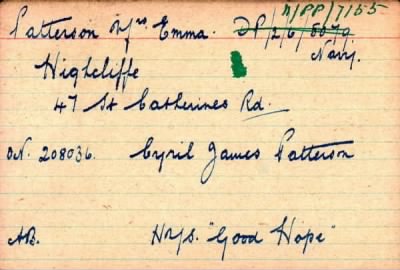 N/PP/7155
Patterson Mrs Emma. DP/2/6/
Navy.
Highcliffe
47 St Catherines Rd.
ON. 208036. Cyril James Patterson
AB. HMS. "Good Hope"